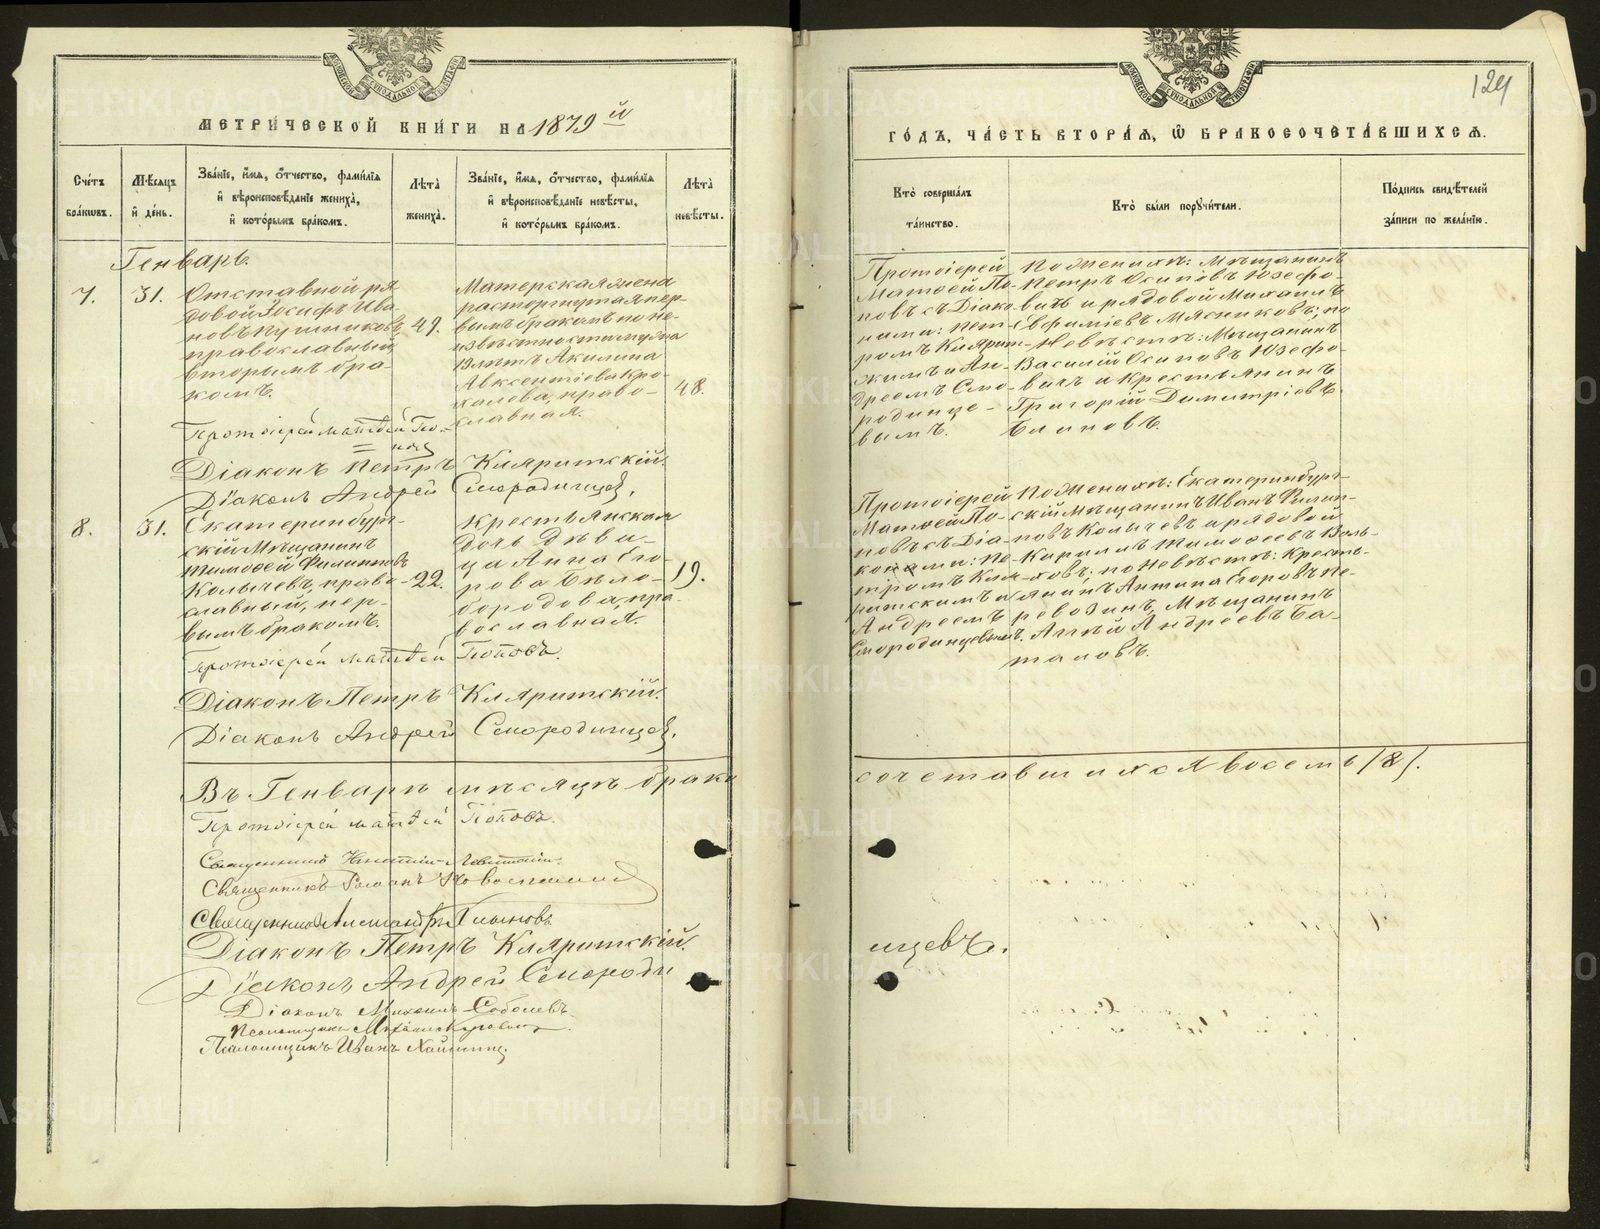 МЕТРИ́ЧЕСКОЙ КНИ́ГИ НА 1879 й
Сче́тъ бра́кωвъ.
Мѣ́сяцъ и҆ де́нь.
Зва́нїе, и҆́мя, ѻ҆́тчество, фами́лїя и҆ вѣроисповѣ́данїе жениха̀, и҆ кото́рымъ бра́комъ.
Лѣ́та жениха̀.
Зва́нїе, и҆́мя, ѻ҆́тчество, фами́лїя и҆ вѣроисповѣ́данїе невѣ́сты, и҆ кото́рымъ бра́комъ.
Лѣ́та невѣ́сты.
Генварь.
7.
31.
Отставной ря
довой Іосифъ Ива
новъ Пушниковъ
православный
вторымъ бра
комъ.
49.
Матерская жена
расторгнутая пер-
вымъ бракомъ по не-
извѣстности мужа
Акилина
Авксентіева Кро-
халова, право-
славная.
48.
Протоіерей Матѳей По-
повъ
Діаконъ Петръ Кляритскій.
Діаконъ Андрей Смородинцевъ.
8.
31.
Екатеринбург-
скій Мѣщанинъ
Тимоѳей Филипповъ
Колычевъ, право-
славный, пер-
вымъ бракомъ.
22.
Крестьянская
дочь дѣви-
ца Анна Его-
рова Бѣло-
бородова, пра-
вославная.
19.
Протоіерей Матѳей Поповъ.
Діаконъ Петръ Кляритскій.
Діаконъ Андрей Смородинцевъ.
Въ Генварѣ мѣсяцѣ брако
Протоіерей Матѳей Поповъ.
Священникъ Игнатій Левитскій.
Священникъ Романъ
Священникъ Александръ
Діаконъ Петръ Кляритскій.
Діаконъ Андрей Смороди
Діаконъ Михаилъ Соболевъ
Псаломщикъ
Псаломщикъ Иванъ
124
ГО́ДЪ, ЧА́СТЬ ВТОРА́Я, Ѽ БРАКОСОЧЕТА́ВШИХСЯ.
Кто̀ соверша́лъ та́инство.
Кто̀ бы́ли поручи́тели.
По́дпись свидѣ́телей за́писи по жела́нїю.
Протоіерей
Матѳей По-
повъ съ Діако
нами: Пет-
ромъ Клярит-
скимъ и Ан-
дреемъ Смо-
родинце-
вымъ.
По Женихѣ: Мѣщанинъ
Петръ Осиповъ Юзефо-
вичъ и рядовой Михаилъ
Евфиміевъ Мясниковъ; по
Невѣстѣ: Мѣщанинъ
Василій Осиповъ Юзефо-
вичъ и Крестьянинъ
Григорій Димитріевъ
Блиновъ.
Протоіерей
Матѳей По-
повъ съ Діа-
конами: Пе-
тромъ Кля-
ритскимъ и
Андреемъ
Смородинцевымъ.
По Женихѣ: Екатеринбург-
скій Мѣщанинъ Иванъ Филип-
повъ Колычевъ и рядовой
Кирилъ Тимоѳеевъ Воль-
ховъ; по Невѣстѣ: Кресть-
янинъ Антипа Егоровъ Пе-
ревозинъ, Мѣщанинъ
Андреевъ Ба-
таловъ.
сочетавшихся восемь /8/.
нцевъ.
METRIKI.GASO-URAL.RU